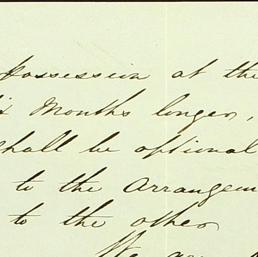 Possession at the
six Months longer,
shall be optional
to the arrangem
to the other
We